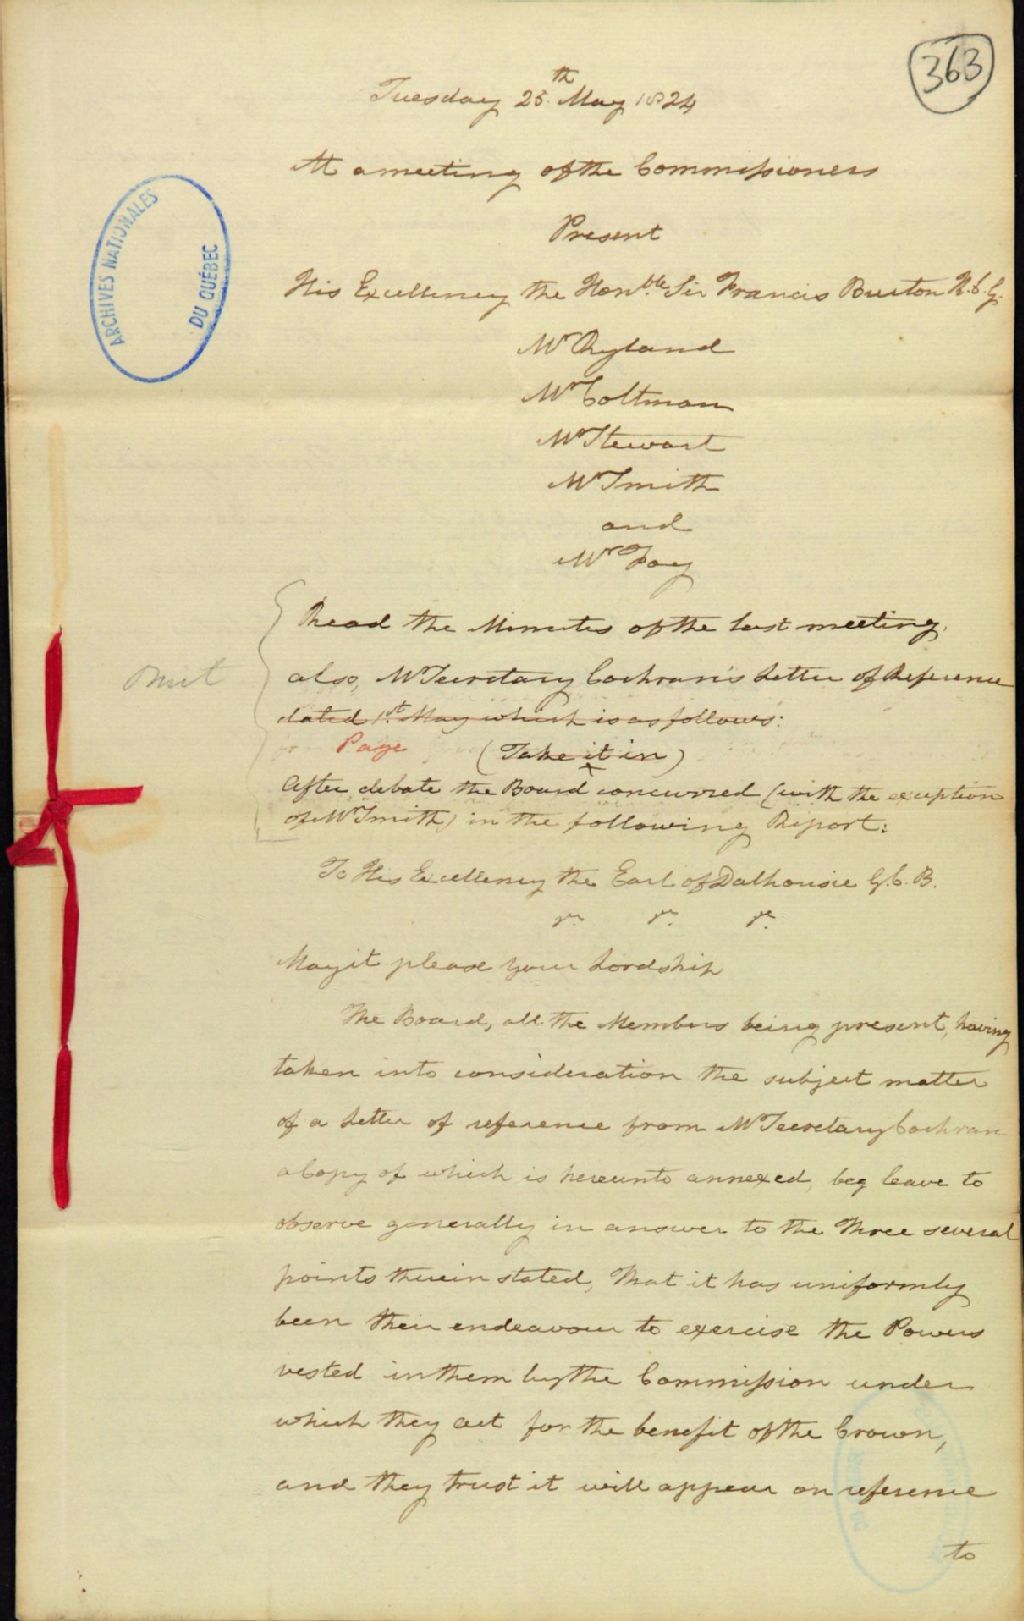 363
Tuesday 25th May 1824
At a meeting of the Commissioners
Present
His Excellency the Honble Sir Francis Burton K.C.G.
ARCHIVES NATIONALES
DU QUÉBEC
Mr Ryland
Mr Coltman
Mr Stewart
Mr Smith
and
Mr Foy
Read the Minutes of the last meeting.
also, Mr Secretary Cochran's Letter of Reference
dated 1st May which is as follows:
Page (Take it in)
After debate the Board concurred (with the exception
of Mr Smith) in the following Report:
To His Excellency the Earl of Dalhousie G.C.B.
May it please your Lordship
The Board, all the Members being present, having
taken into consideration the subject matter
of a Letter of reference from Mr Secretary Cochran
a Copy of which is hereunto annexed, beg leave to
observe generally in answer to the three several
points therein stated, That it has uniformly
been their endeavour to exercise the Powers
vested in them by the Commission under
which they act for the benefit of the Crown,
and they trust it will appear on reference
to